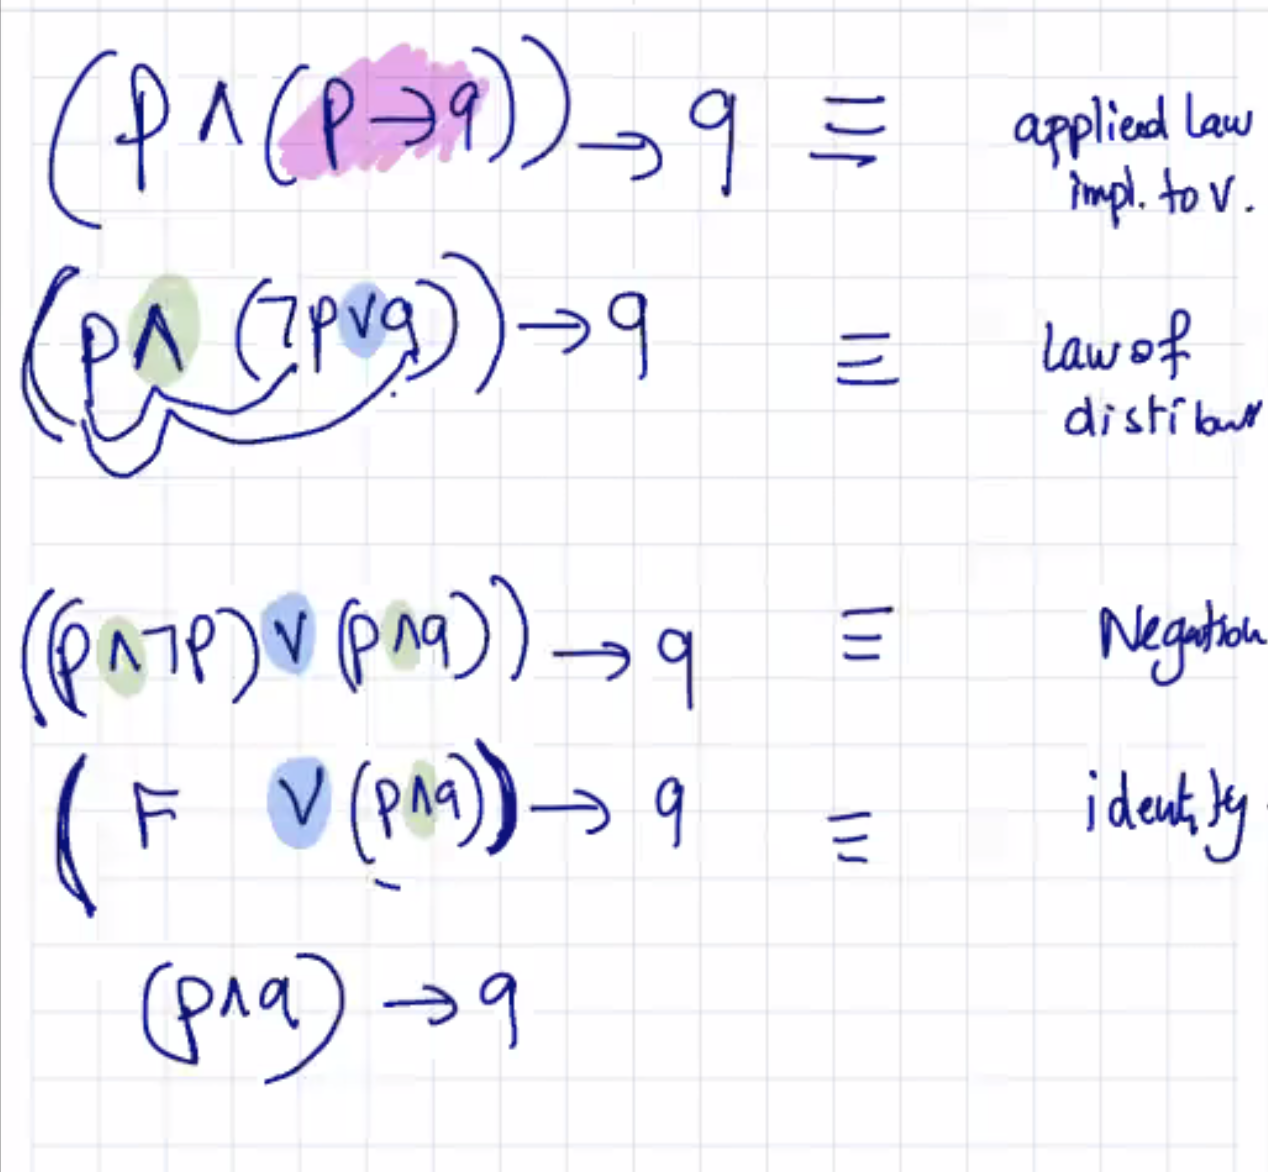 (p ∧ (p → q)) → q ≡ applied law
impl. to v.
(p ∧ (¬p ∨ q)) → q ≡ law of
((p ∧ ¬p) ∨ (p ∧ q)) → q ≡ Negation
( F ∨ (p ∧ q)) → q ≡ identity
(p ∧ q) → q